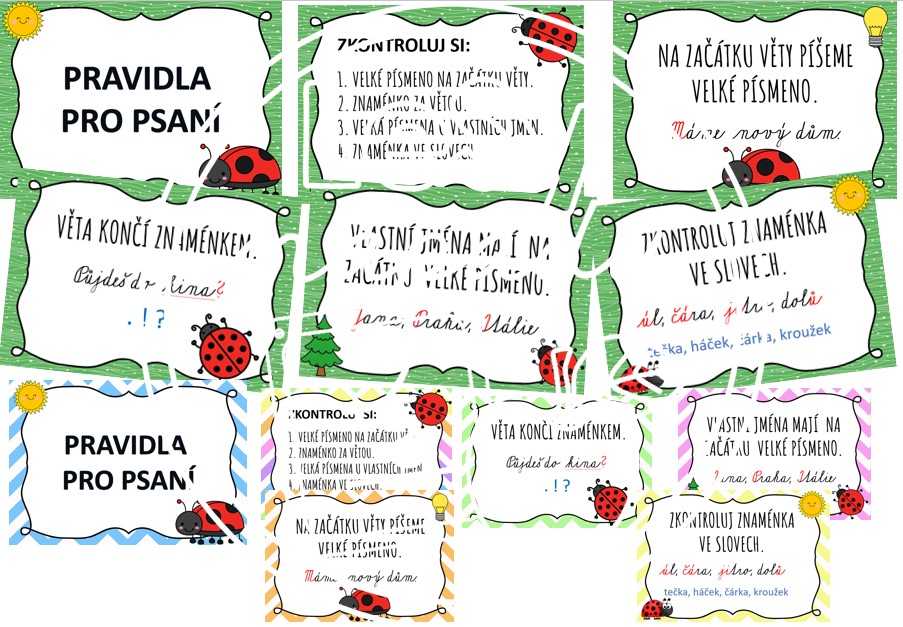 PRAVIDLA
PRO PSANÍ
ZKONTROLUJ SI:
1. VELKÉ PÍSMENO NA ZAČÁTKU VĚTY.
2. ZNAMÉNKO ZA VĚTOU.
3. VELKÁ PÍSMENA U VLASTNÍCH JMEN.
4. ZNAMÉNKA VE SLOVECH.
NA ZAČÁTKU VĚTY PÍŠEME
VELKÉ PÍSMENO.
Máme nový dům.
VĚTA KONČÍ ZNAMÉNKEM.
Půjdeš do kina?
. ! ?
VLASTNÍ JMÉNA MAJÍ NA
ZAČÁTKU VELKÉ PÍSMENO.
Jana, Praha, Itálie
ZKONTROLUJ ZNAMÉNKA
VE SLOVECH.
úl, čára, jitro, dolů
tečka, háček, čárka, kroužek
PRAVIDLA
PRO PSANÍ
ZKONTROLUJ SI:
1. VELKÉ PÍSMENO NA ZAČÁTKU VĚTY.
2. ZNAMÉNKO ZA VĚTOU.
3. VELKÁ PÍSMENA U VLASTNÍCH JMEN
4. ZNAMÉNKA VE SLOVECH.
VĚTA KONČÍ ZNAMÉNKEM.
Půjdeš do kina?
. ! ?
VLASTNÍ JMÉNA MAJÍ NA
ZAČÁTKU VELKÉ PÍSMENO.
Jana, Praha, Itálie
NA ZAČÁTKU VĚTY PÍŠEME
VELKÉ PÍSMENO.
Máme nový dům.
ZKONTROLUJ ZNAMÉNKA
VE SLOVECH.
úl, čára, jitro, dolů
tečka, háček, čárka, kroužek